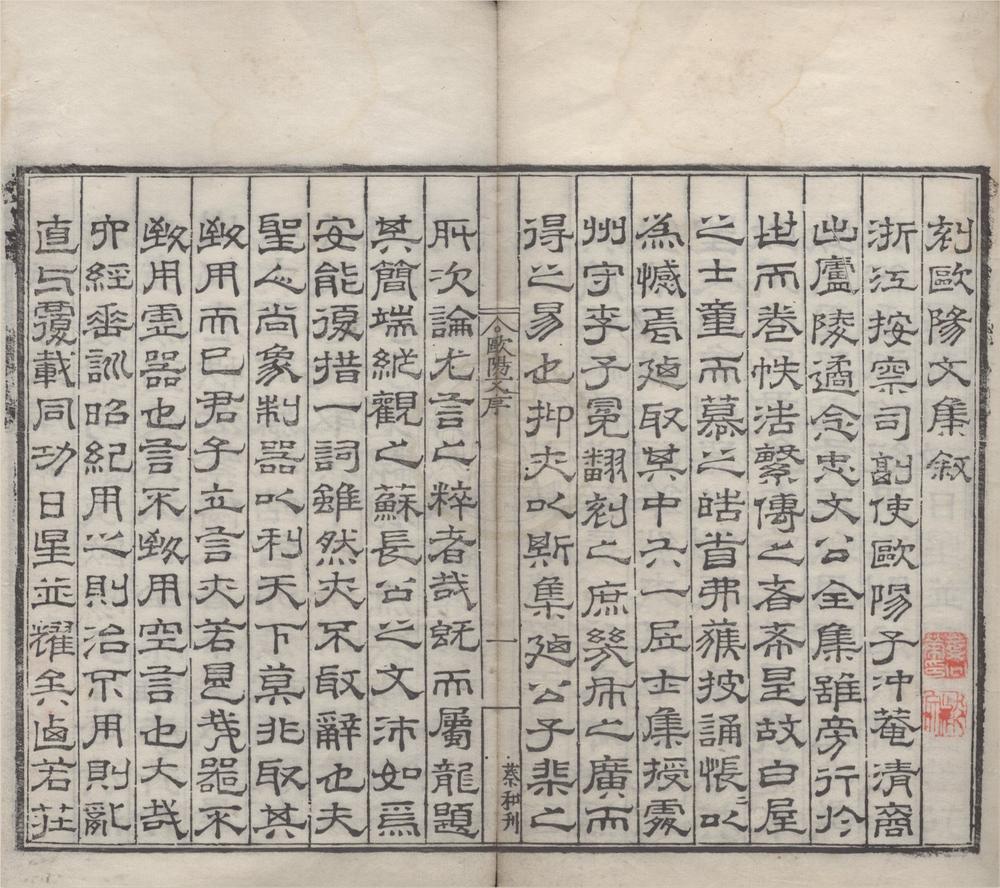 刻歐陽文集敘
浙江按察司副使歐陽子沖菴清齋
出廬陵遹念忠文公全集雖旁行於
世而卷帙浩繁傳之者希是故白屋
之士童而慕之皓首弗獲披誦悵以
為憾焉廼取其中六一居士集授處
州守李子冕翻刻之庶幾布之廣而
得之易也抑夫以斯集廼公子棐之
所次論尤言之粹者哉既而屬龍題
其簡端縱觀之蘇長公之文沛如焉
安能復措一詞雖然夫不取辭也夫
聖人尚象制器以利天下莫非取其
致用而已君子立言夫若是哉器不
致用虛器也言不致用空言也大哉
六經垂訓昭紀用之則治不用則亂
直与覆載同功日星並耀矣卤若莊
歐陽文序
一
蔡和刊